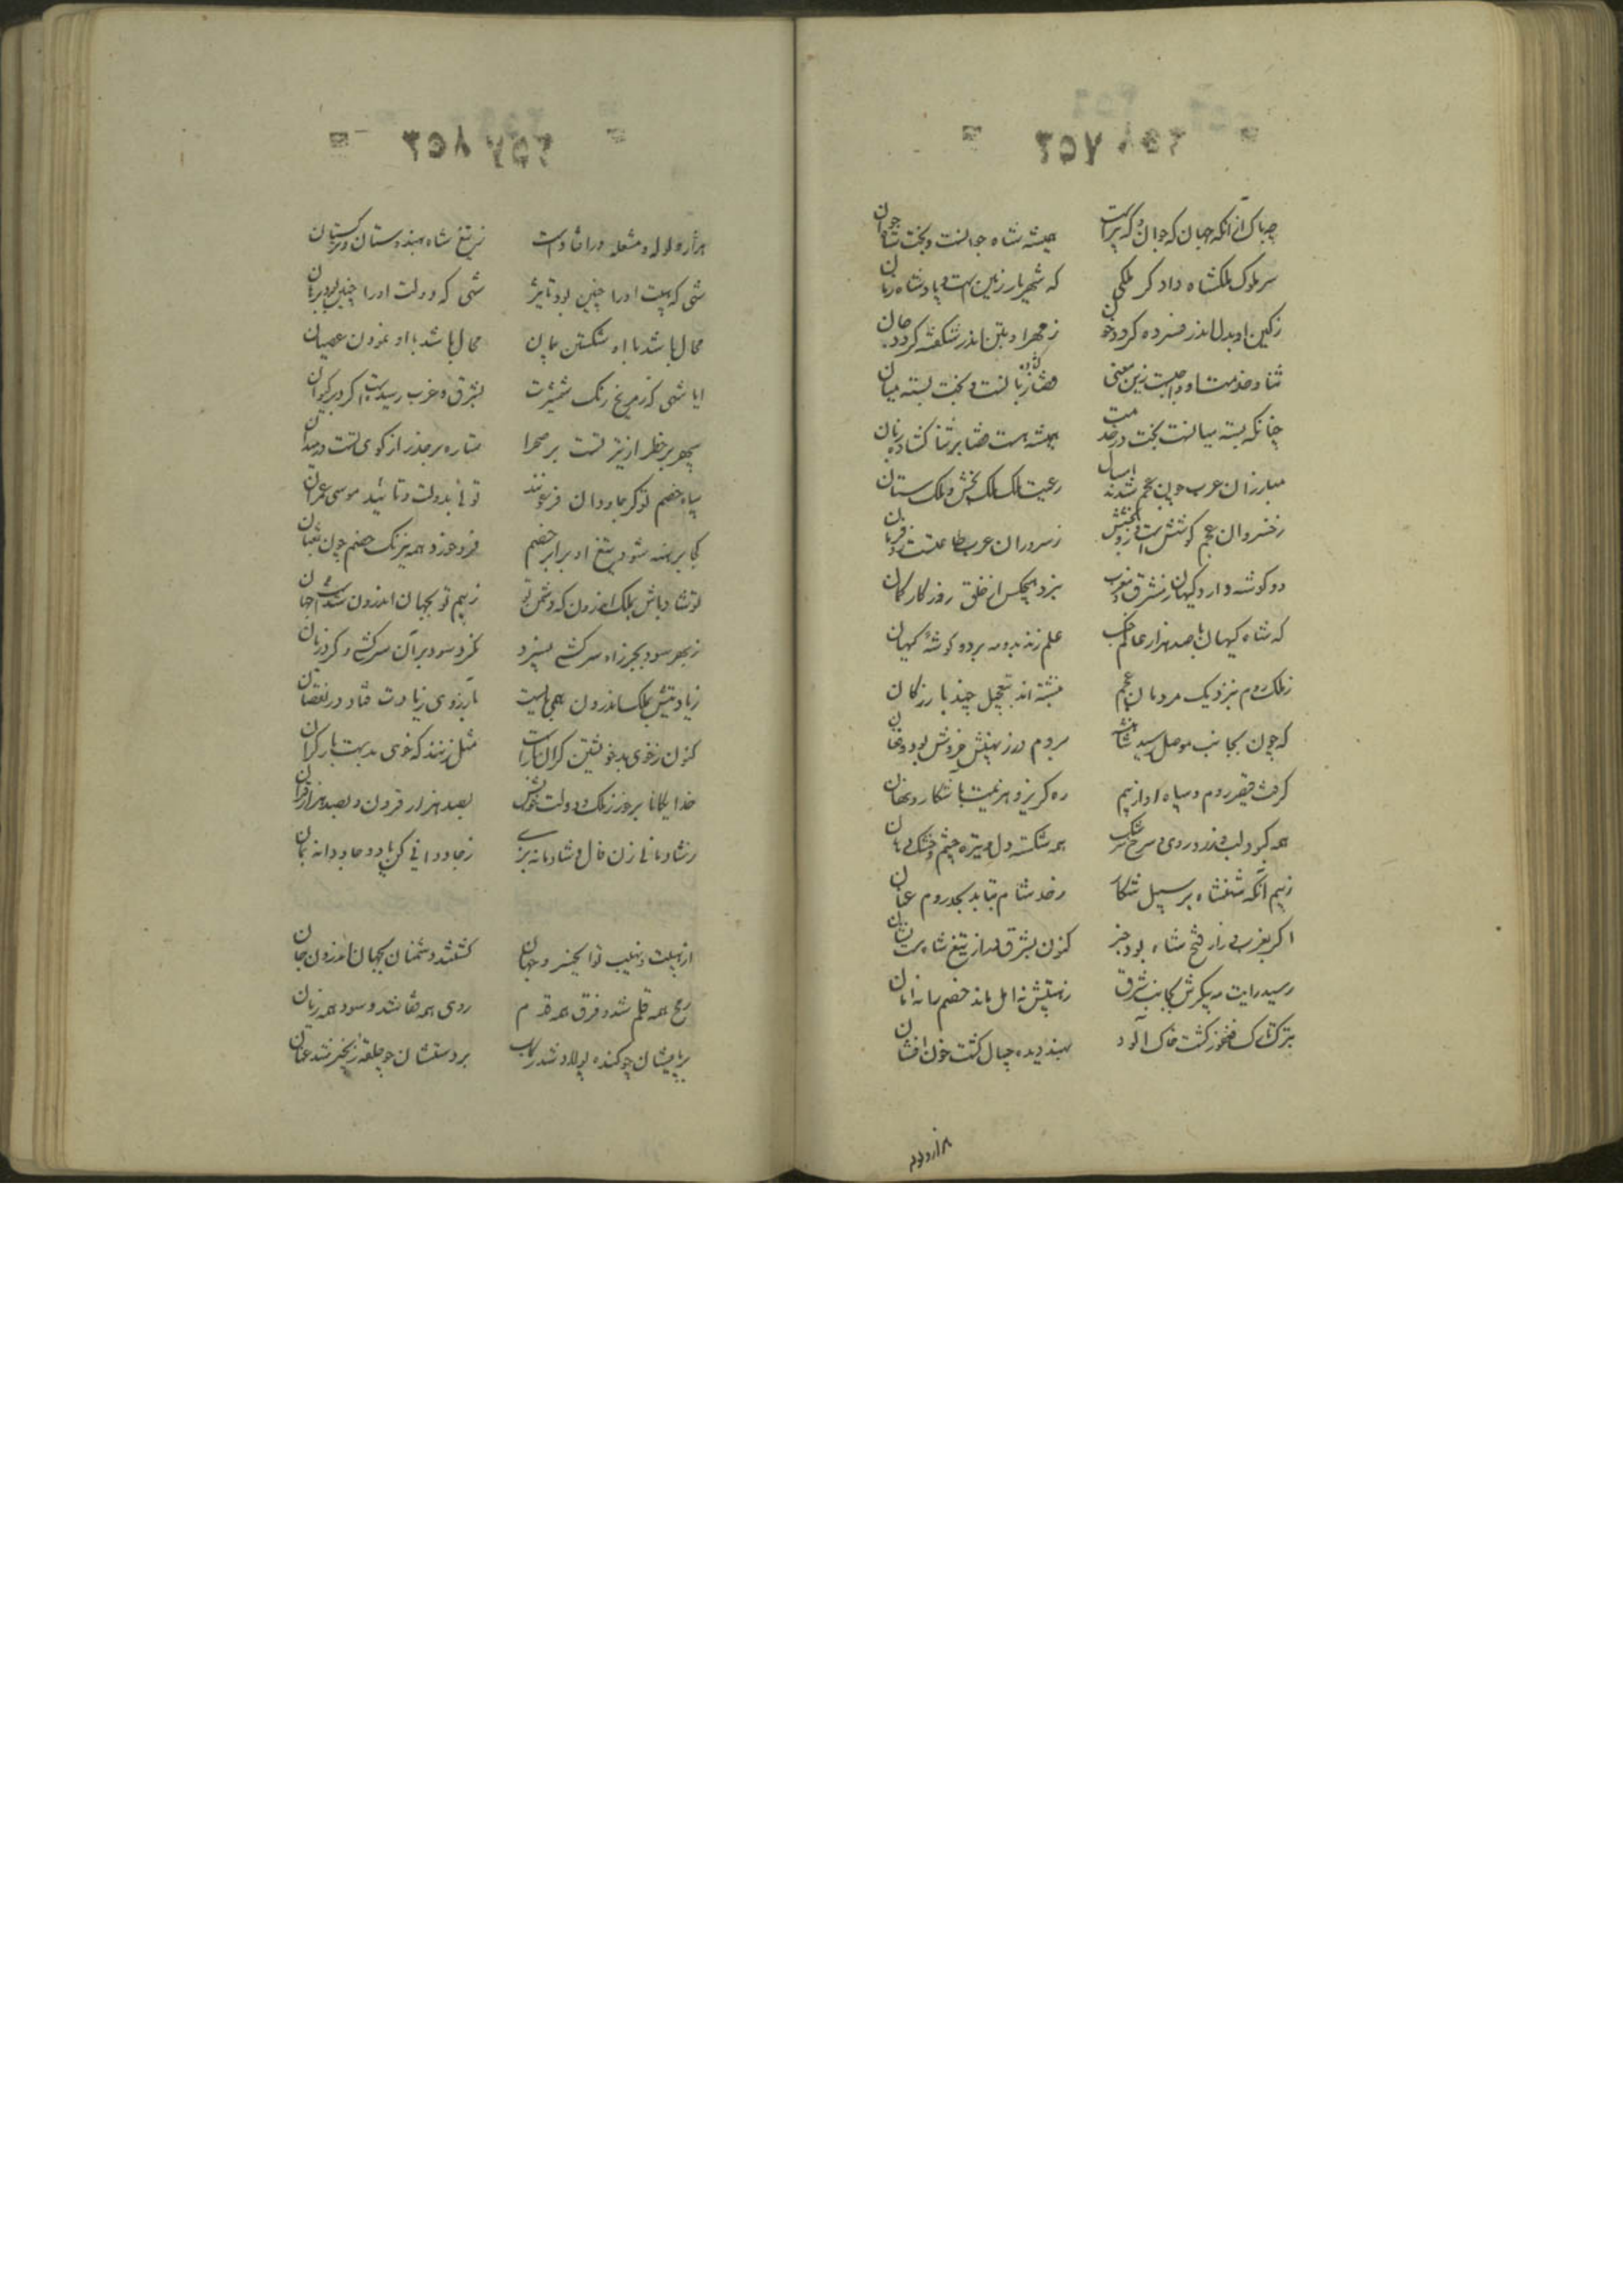 چه باک از آنکه جهان که جوان و که پیر است همیشه شاه جوانست و بخت شاه جوان
سر ملوک ملکشاه دادگر ملکی که شهریار زمین است و پادشاه زمان
زکین او بدل اندر فسرده گردد خون زمهر او بتن اندر شکفته گردد جان
ثنا و خدمت او واجبست زین معنی قضا زبان کشاده است و بخت بسته میان
چنانکه بسته میانست بخت در خدمت همیشه هست قضا بر ثنا کشاده زبان
مبارزان عرب چون عجم شدند امسال رعیت ملک ملک بخش و ملک ستان
زخسروان عجم کوشش است و بخشش ازو زسروران عرب طاعتست و فرمان
دو گوشه دارد کیهان زمشرق و مغرب بنزد هیچکس از خلق روزگار گمان
که شاه کیهان با صد هزار عالم جنگ علم زند بدو مه بر دو گوشه کیهان
زملک روم بنزدیک مردمان عجم نبشته اند بتعجیل چند بازرگان
که چون بجانب موصل رسید شاهنشه بروم در زنهیبش خروش بود و فغان
گرفت قیصر روم و سپاه او از بیم ره گریز و هزیمت بآشکار و نهان
همه کبود لب و زرد روی و سرخ سرشک همه شکسته دل و تیره چشم و خشک دهان
زبیم آنکه شهنشاه بر سبیل شکار زحد شام بتابد بحد روم عنان
اگر بغرب در از فتح شاه بود خبر کنون بشرق در از تیغ شاه هست نشان
رسید رایت مه پیکرش بجانب شرق زهیبتش نه امل ماند خصم را نه امان
بترک تارک فغفور گشت خاک آلود بهند دیده جیپال گشت خون افشان
هزار ولوله و مشعله در افتاد است زتیغ شاه بهندوستان و ترکستان
شهی که هیبت او را چنین بود تأثیر شهی که دولت او را چنین بود برهان
محال باشد با او شکستن پیمان محال باشد با او نمودن عصیان
ایا شهی که زمریخ رنگ شمشیرت بشرق و غرب رسید است گرد بر کیوان
سپهر بر خطر از تیر تست بر صحرا ستاره بر حذر از گوی تست در میدان
سپاه خصم تو گر جاودان فرعونند توئی بدولت و تأیید موسی عمران
کجا برهنه شود تیغ او برابر خصم فرو خورد همه نیرنگ خصم چون ثعبان
تو شاد باش بملک اندرون که دشمن تو زبیم تو بجهان اندرون
زبهر سود بحر زاد سرکشی میزد نکرد سود بر آن سرکشی و کرد زیان
زیادتیش بملک اندرون همی بایست بآرزوی زیادت فتاد در نقصان
کنون زخوی بد خویشتن گران بار است مثل زنند که خوی بد است بار گران
خدایگانا برخور زملک و دولت خویش بصد هزار قرون و بصد هزار قران
زشادمانی زن فال و شادمانه بزی زجاودانی کن یاد و جاودانه بمان
از هیبت و نهیب تو ای خسرو جهان گشتند دشمنان بجهان اندرون جهان
رمح همه قلم شد و فرق همه قدم روی همه قفا شد و سود همه زیان
بر پایشان چو کنده پولاد شد رکاب بر دستشان چو حلقه زنجیر شد عنان